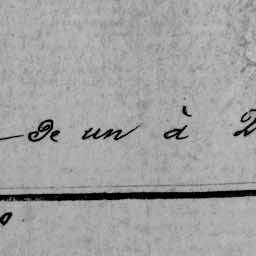 De un à